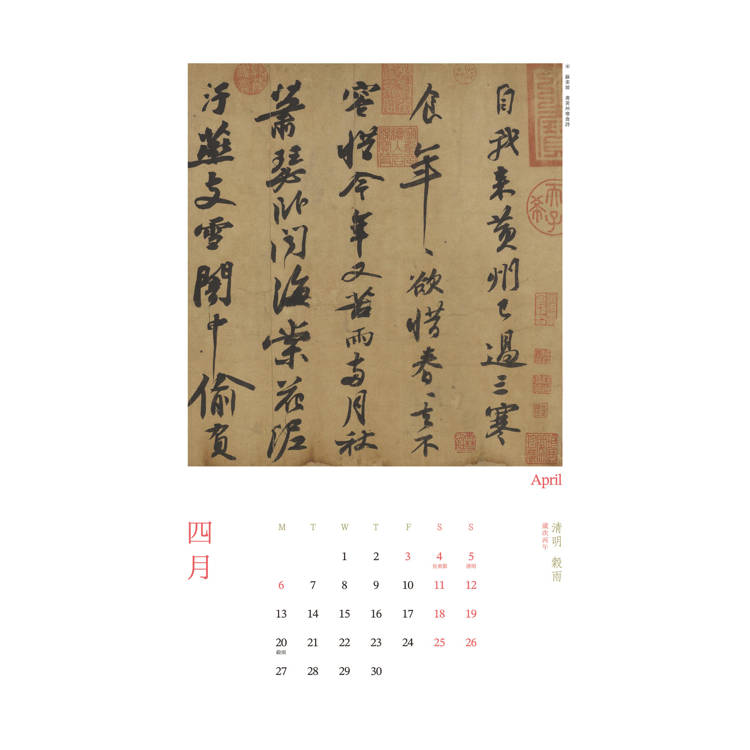 自我來黃州已過三寒
食年〻欲惜春〻去不
容惜今年又苦雨兩月秋
蕭瑟臥聞海棠花泥
汙燕支雪闇中偷負
書黃州寒食詩
April
四月
清明 穀雨
歲次丙午
M T W T F S S
1 2 3 4 5
兒童節 清明
6 7 8 9 10 11 12
13 14 15 16 17 18 19
20 21 22 23 24 25 26
穀雨
27 28 29 30